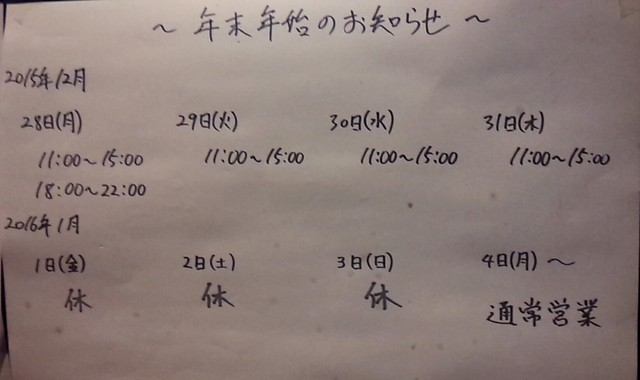 ～ 年末年始のお知らせ ～
2015年12月
28日(月) 29日(火) 30日(水) 31日(木)
11:00～15:00 11:00～15:00 11:00～15:00 11:00～15:00
18:00～22:00
2016年1月
1日(金) 2日(土) 3日(日) 4日(月) ～
休 休 休 通常営業